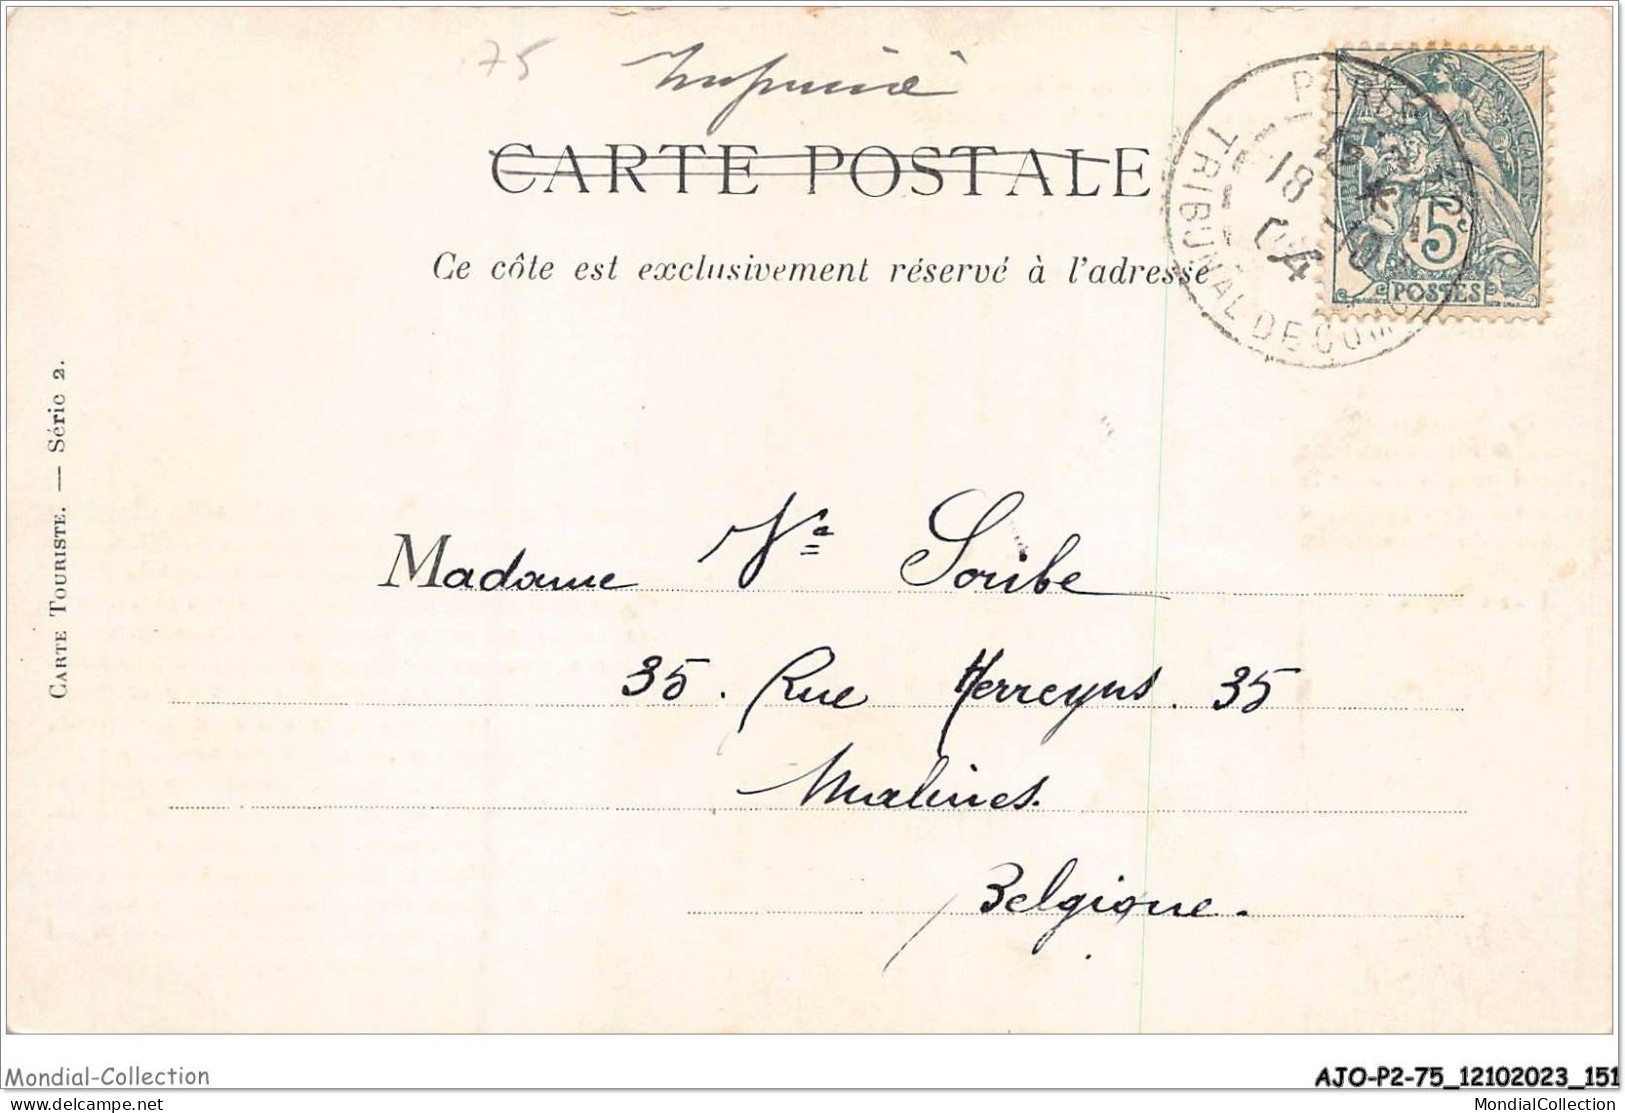 75 Imprimé
CARTE POSTALE
Ce côte est exclusivement réservé à l'adresse
PARIS
18
04
TRIBUNAL DE COM
RÉPUBLIQUE FRANÇAISE
5c
POSTES
CARTE TOURISTE. — Série 2.
Madame Ve Soribe
35. Rue Herreyns. 35
Malines.
Belgique.
Mondial-Collection
AJO-P2-75_12102023_151
delcampe.net
MondialCollection